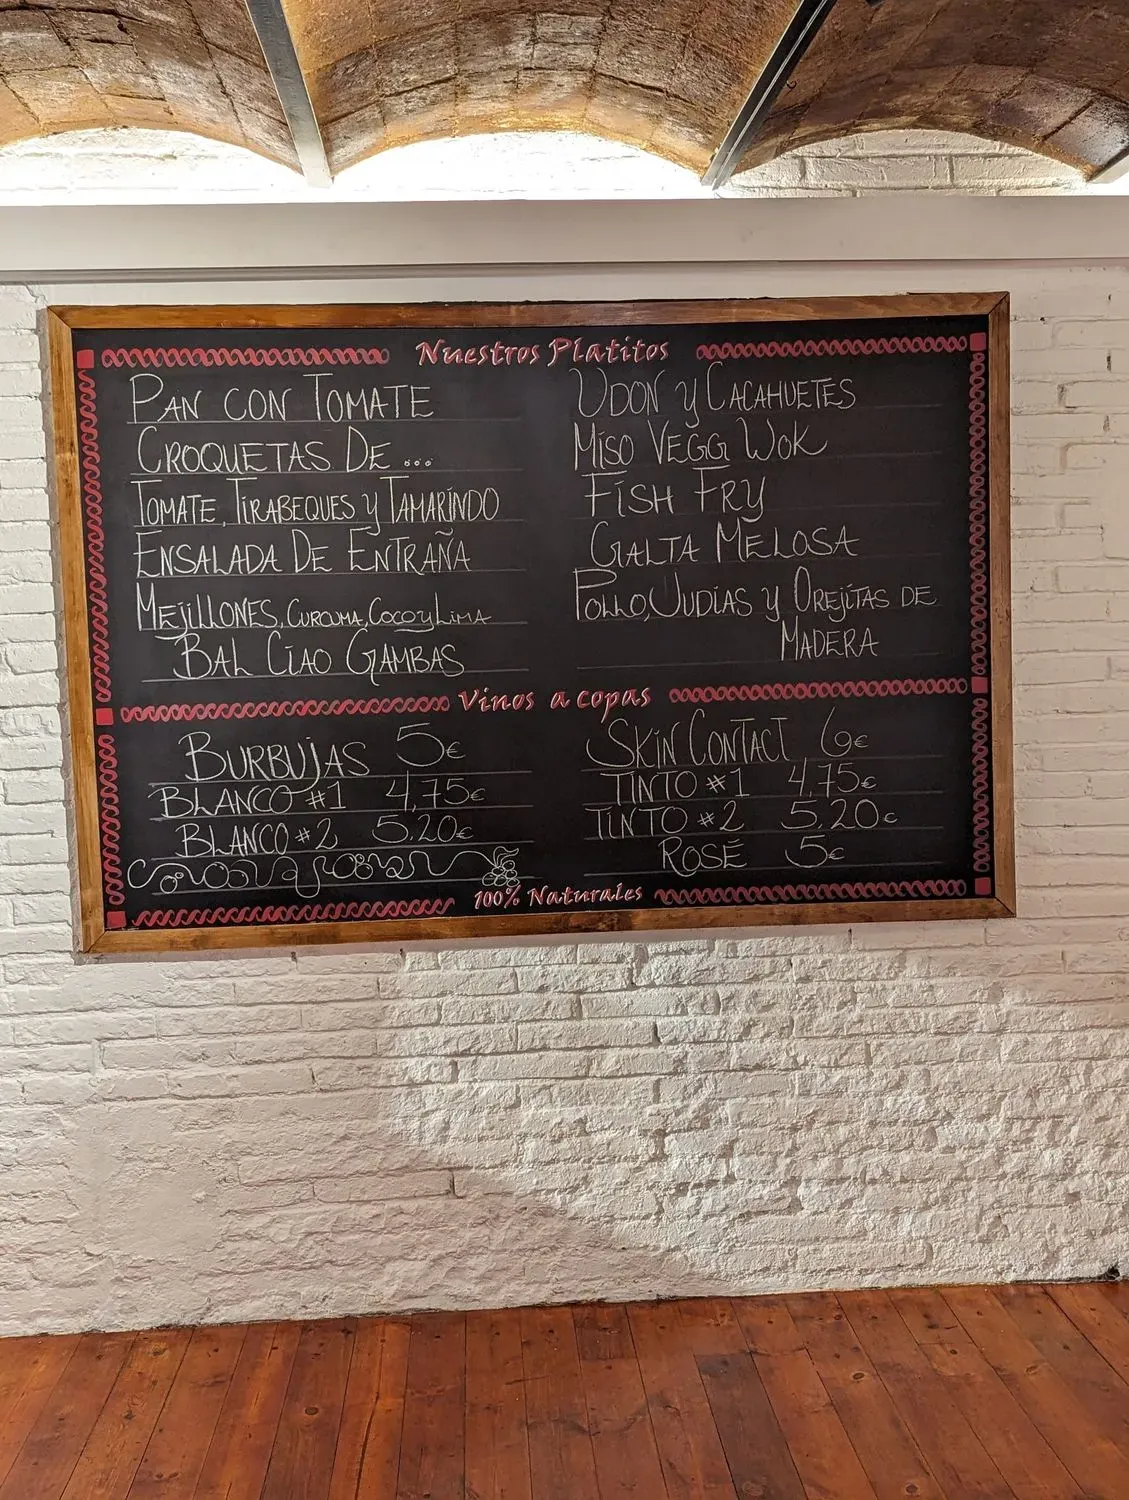 Nuestros Platitos
PAN CON TOMATE
CROQUETAS DE ...
TOMATE, TIRABEQUES Y TAMARINDO
ENSALADA DE ENTRAÑA
MEJILLONES, CURCUMA, COCO Y LIMA
BAL CIAO GAMBAS
UDON Y CACAHUETES
MISO VEGG WOK
FISH FRY
GALTA MELOSA
POLLO, JUDIAS Y OREJITAS DE
MADERA
Vinos a copas
BURBUJAS 5€
BLANCO #1 4,75€
BLANCO #2 5.20€
SKIN CONTACT 6€
TINTO #1 4,75€
TINTO #2 5.20€
ROSÉ 5€
100% Naturales